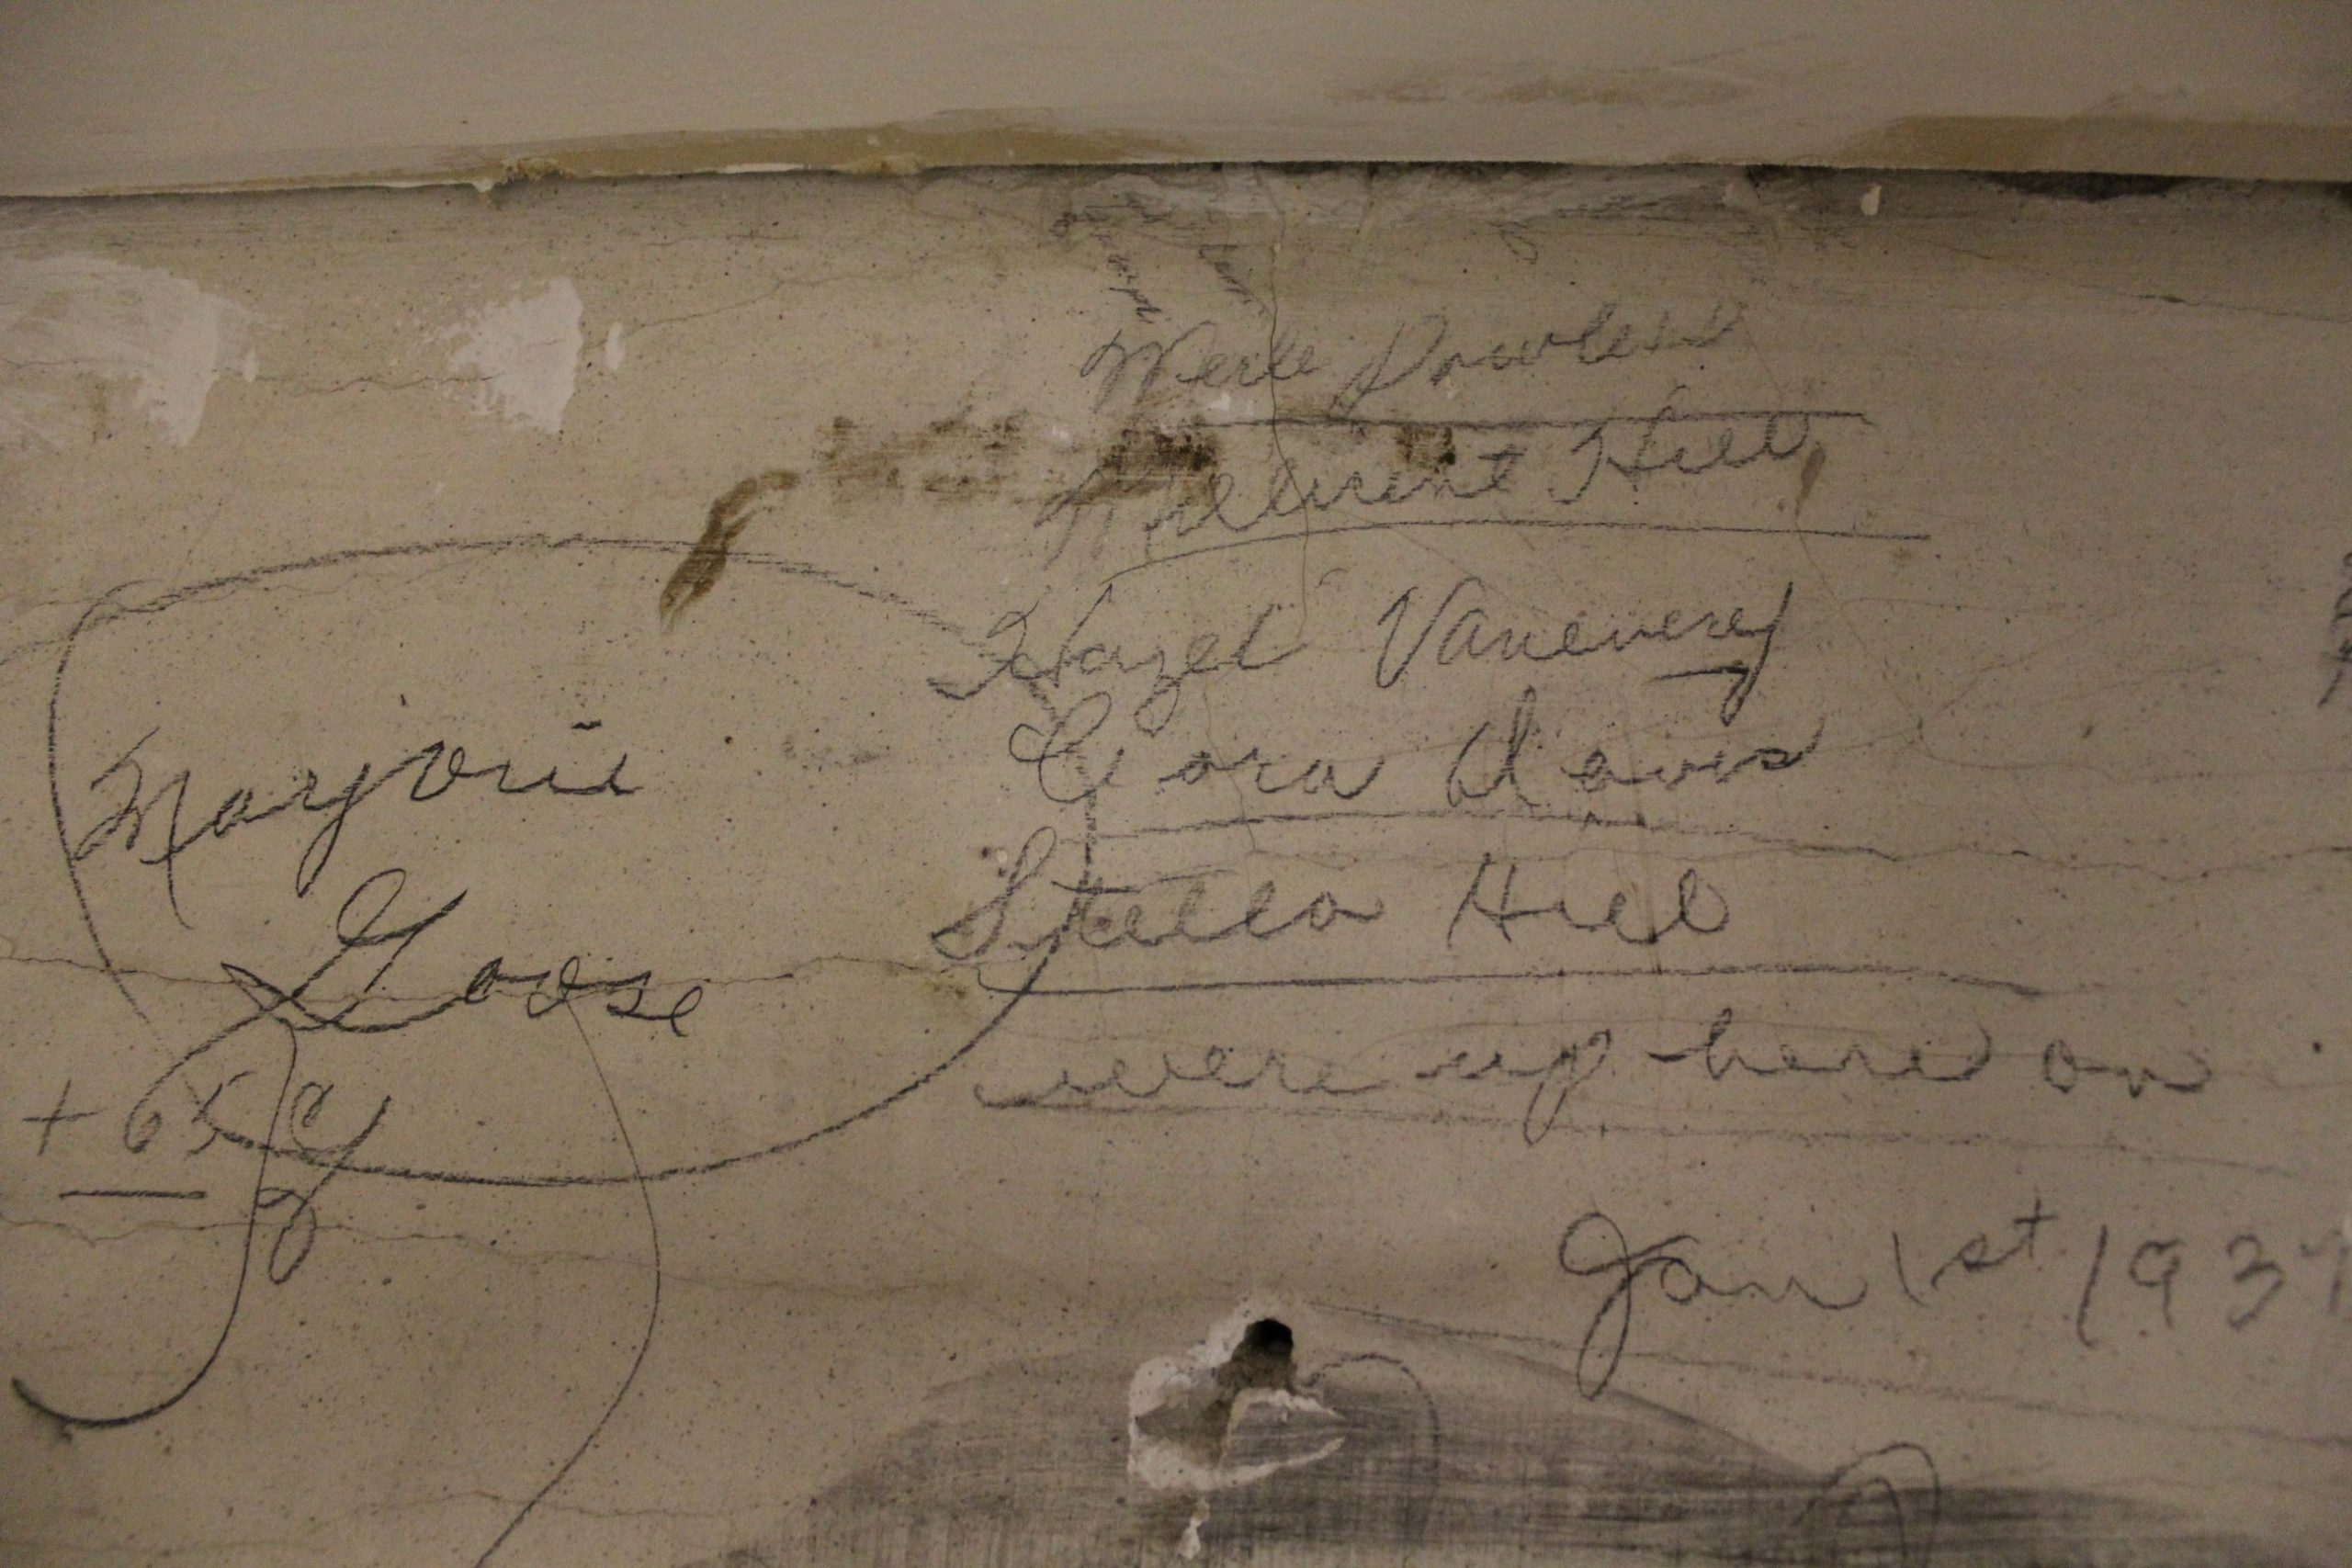 Merle Powless
Hill
Hazel Vanevery
Cora Davis
Stella Hill
were up here on
Jan 1st 193
Marjorie
Goose
+ 65